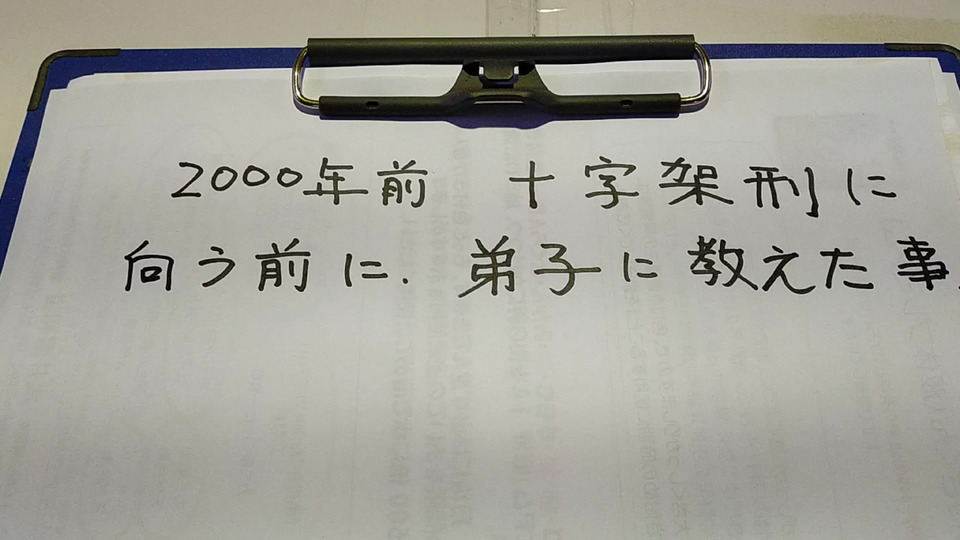 2000年前 十字架刑に
向う前に、弟子に教えた事